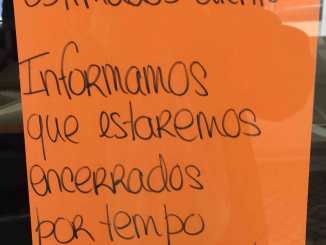 Informamos
que estaremos
encerrados
por tempo